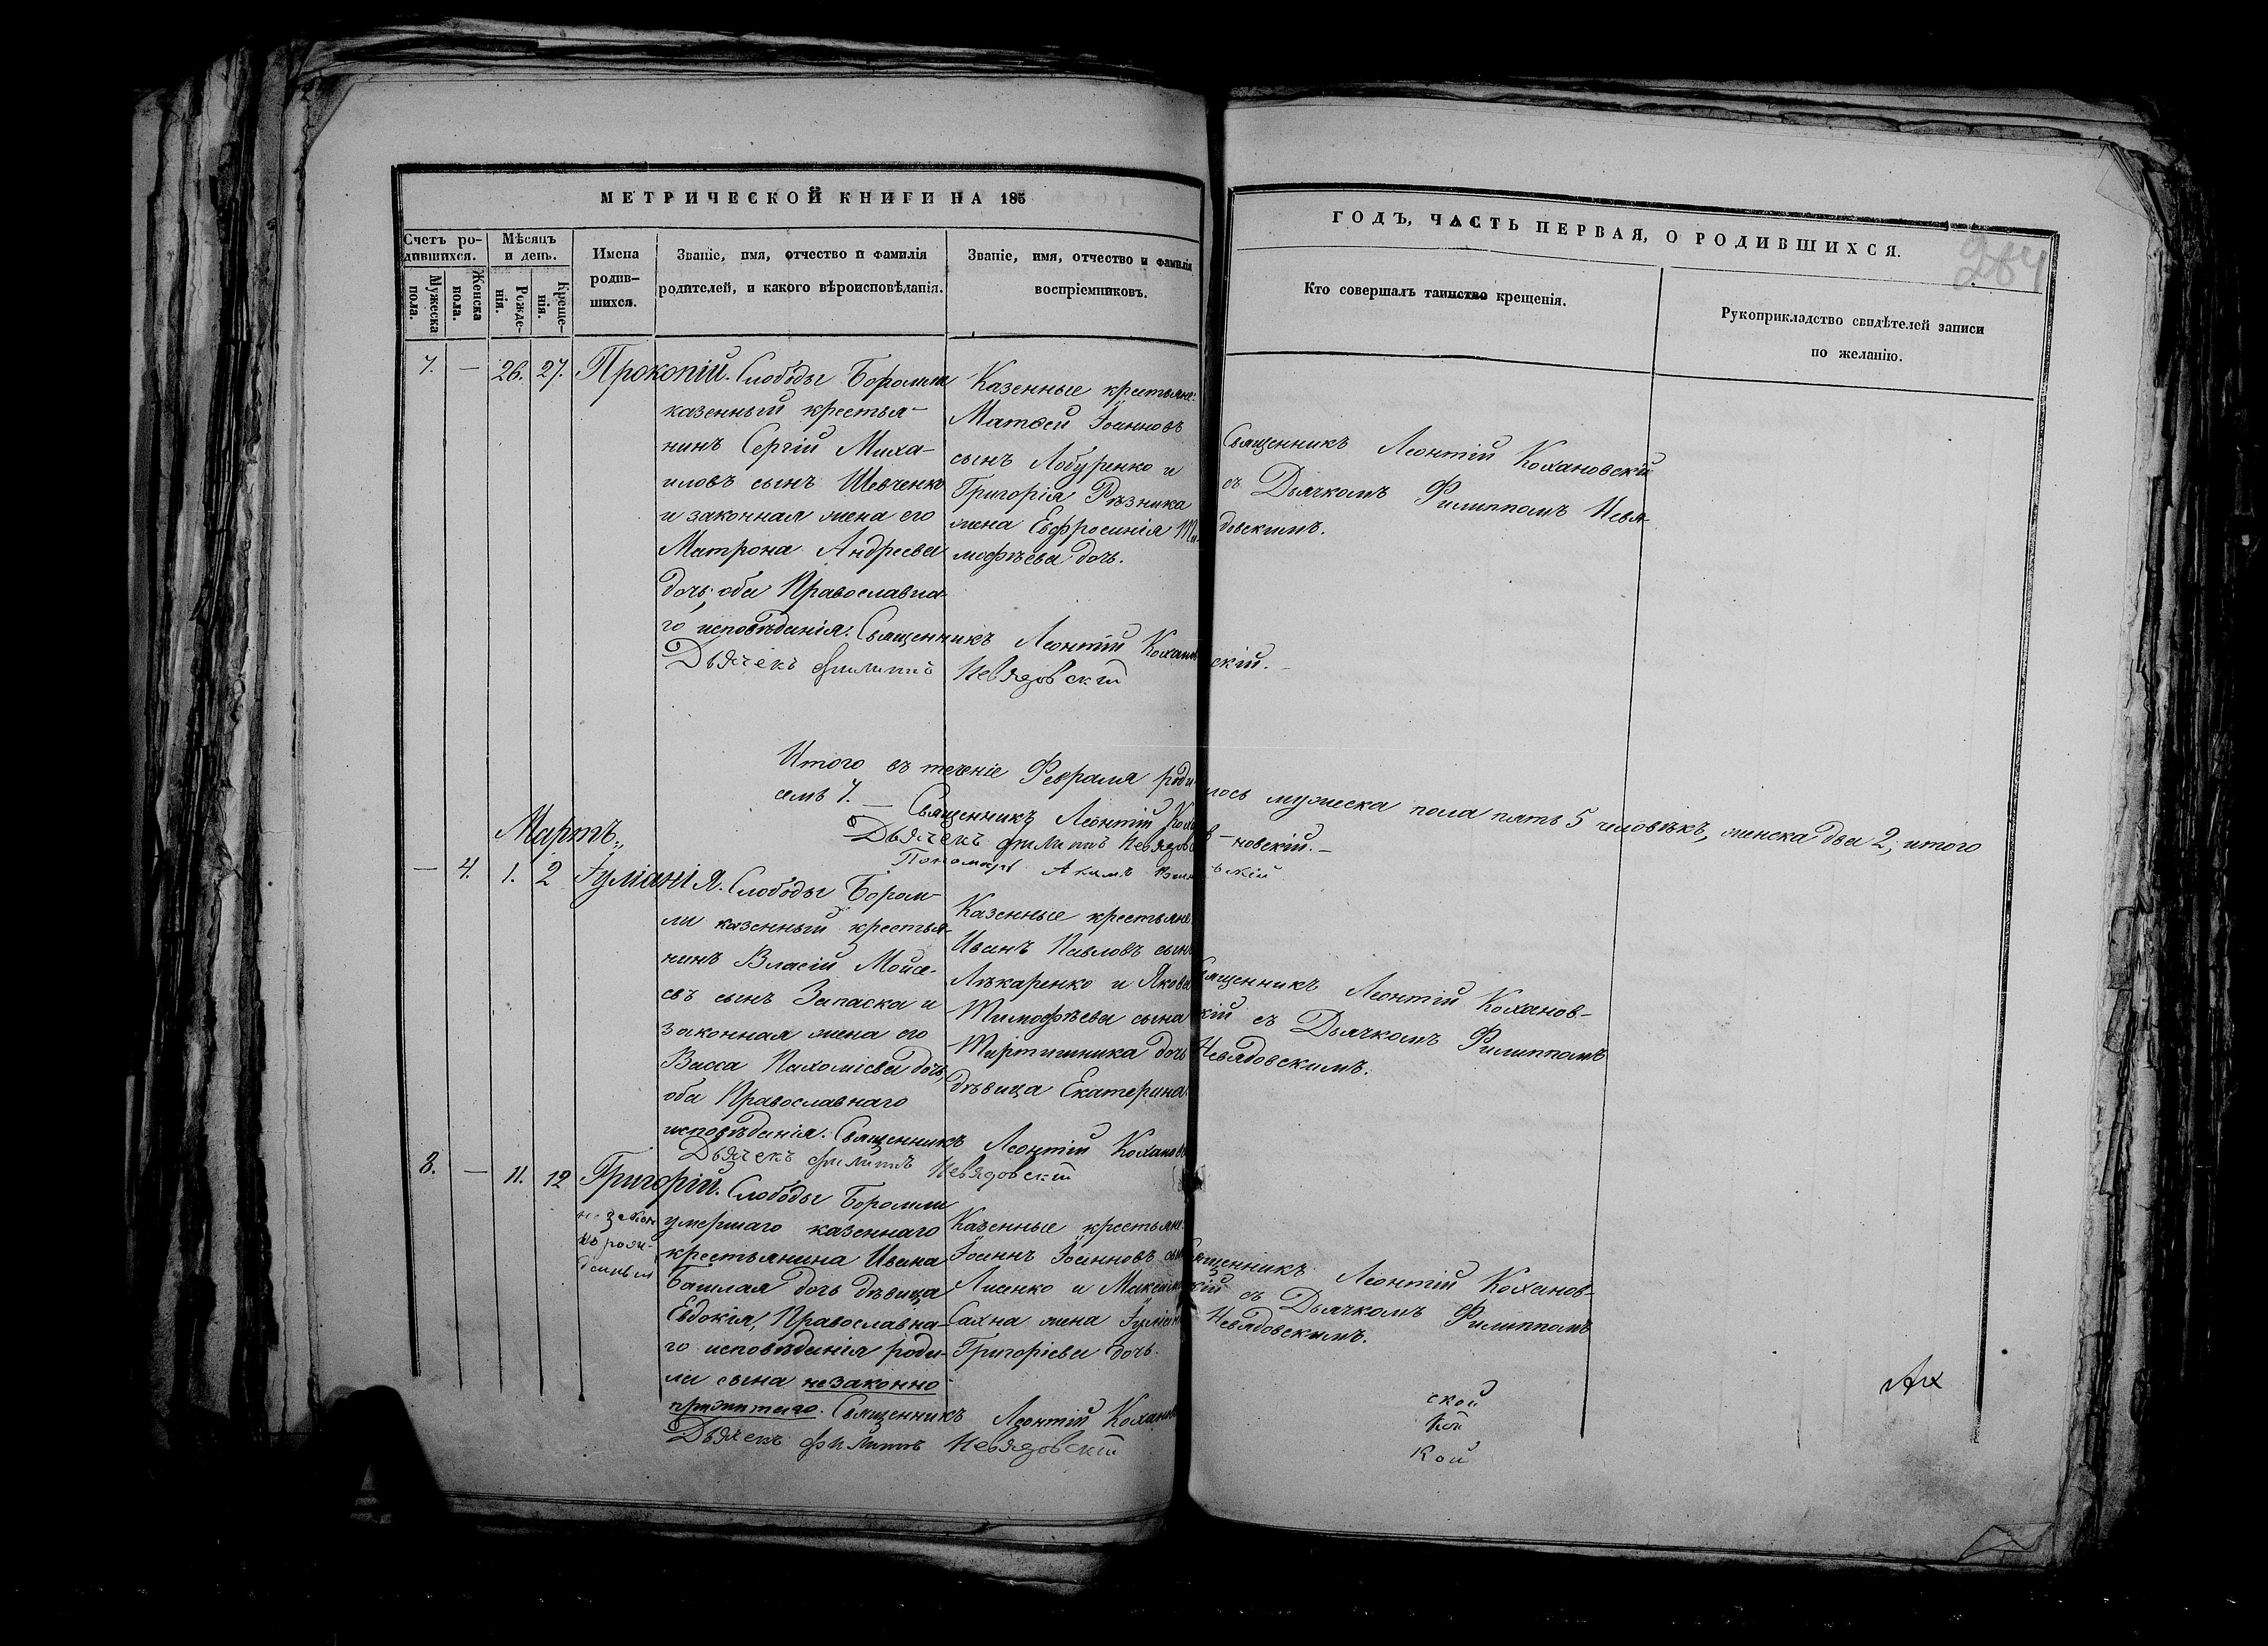 МЕТРИЧЕСКОЙ КНИГИ НА 185
ГОДЪ, ЧАСТЬ ПЕРВАЯ, О РОДИВШИХСЯ.
264
Счетъ ро-
дившихся.
Мужеска
пола.
Женска
пола.
Мѣсяцъ
и день.
Рожде-
нія.
Креще-
нія.
Имена
родив-
шихся.
Званіе, имя, отчество и фамилія
родителей, и какого вѣроисповѣданія.
Званіе, имя, отчество и фамилія
воспріемниковъ.
Кто совершалъ таинство крещенія.
Рукоприкладство свидѣтелей записи
по желанію.
7. — 26. 27. Прокопій.
Слободы Боромли
казенный крестья-
нинъ Сергій Миха-
иловъ сынъ Шевченко
и законная жена его
Матрона Андреева
дочь, оба Православна-
го исповѣданія. Священникъ Леонтій Кохановскій.
Дьячекъ Филиппъ Невядовскій
Казенные крестьяне:
Матѳей Іоанновъ
сынъ Лобуренко и
Григорія Рѣзника
жена Евфросинія Ти-
мофѣева дочь.
Священникъ Леонтій Кохановскій
съ Дьячкомъ Филиппомъ Невя-
довскимъ.
Итого въ теченіе Февраля родилось мужеска пола пять 5 человѣкъ, женска два 2; итого
семь 7. — Священникъ Леонтій Кохановскій. —
Дьячекъ Филиппъ Невядовскій
Пономарь Акимъ
Мартъ
— 4. 1. 2 Іуліанія.
Слободы Бором-
ли казенный крестья-
нинъ Власій Мойсе-
евъ сынъ Запаска и
законная жена его
Васса Пахоміева дочь,
оба Православнаго
исповѣданія. Священникъ Леонтій Коханов
Дьячекъ Филиппъ Невядовскій
Казенные крестьяне:
Иванъ Павловъ сынъ
Лѣкаренко и Якова
Тимофѣева сына
дочь
дѣвица Екатерина.
Священникъ Леонтій Коханов-
скій съ Дьячкомъ Филиппомъ
Невядовскимъ.
8. — 11. 12 Григорій.
незакон
но рож-
денный
Слободы Боромли
умершаго казеннаго
крестьянина Ивана
Башлая дочь дѣвица
Евдокія, Православна-
го исповѣданія роди-
ли сына незаконно
прижитаго. Священникъ Леонтій Коханов
Дьячекъ Филиппъ Невядовскій
Казенные крестьяне:
Іоаннъ Іоанновъ сынъ
Лисенко и Максима
Сахна жена Іуліанія
Григоріева дочь.
Священникъ Леонтій Коханов-
скій съ Дьячкомъ Филиппомъ
Невядовскимъ.
ской
кой
кой